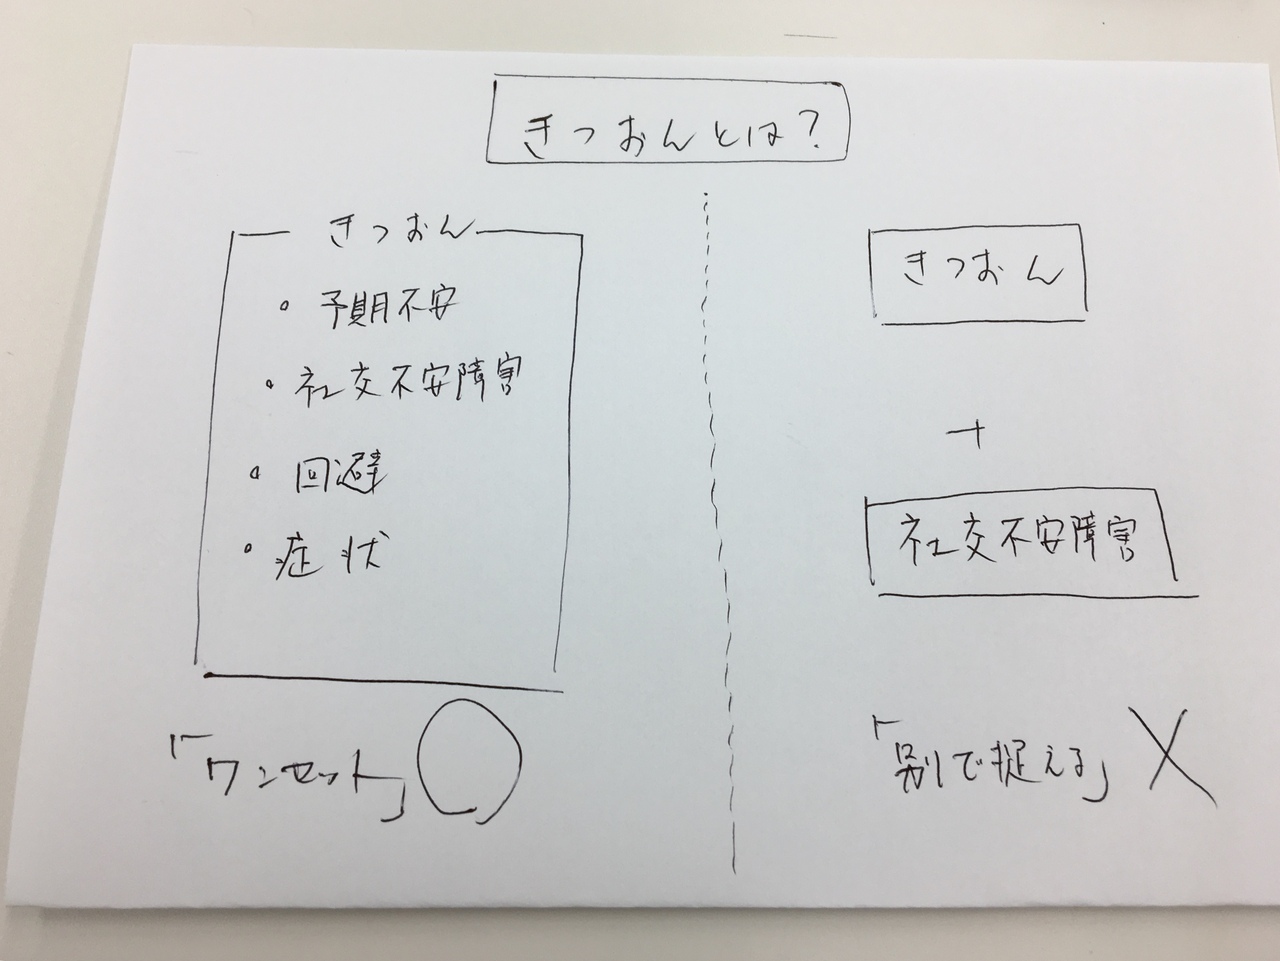 きつおんとは?
きつおん
・予期不安
・社交不安障害
・回避
・症状
「ワンセット」○
きつおん
+
社交不安障害
「別で捉える」×